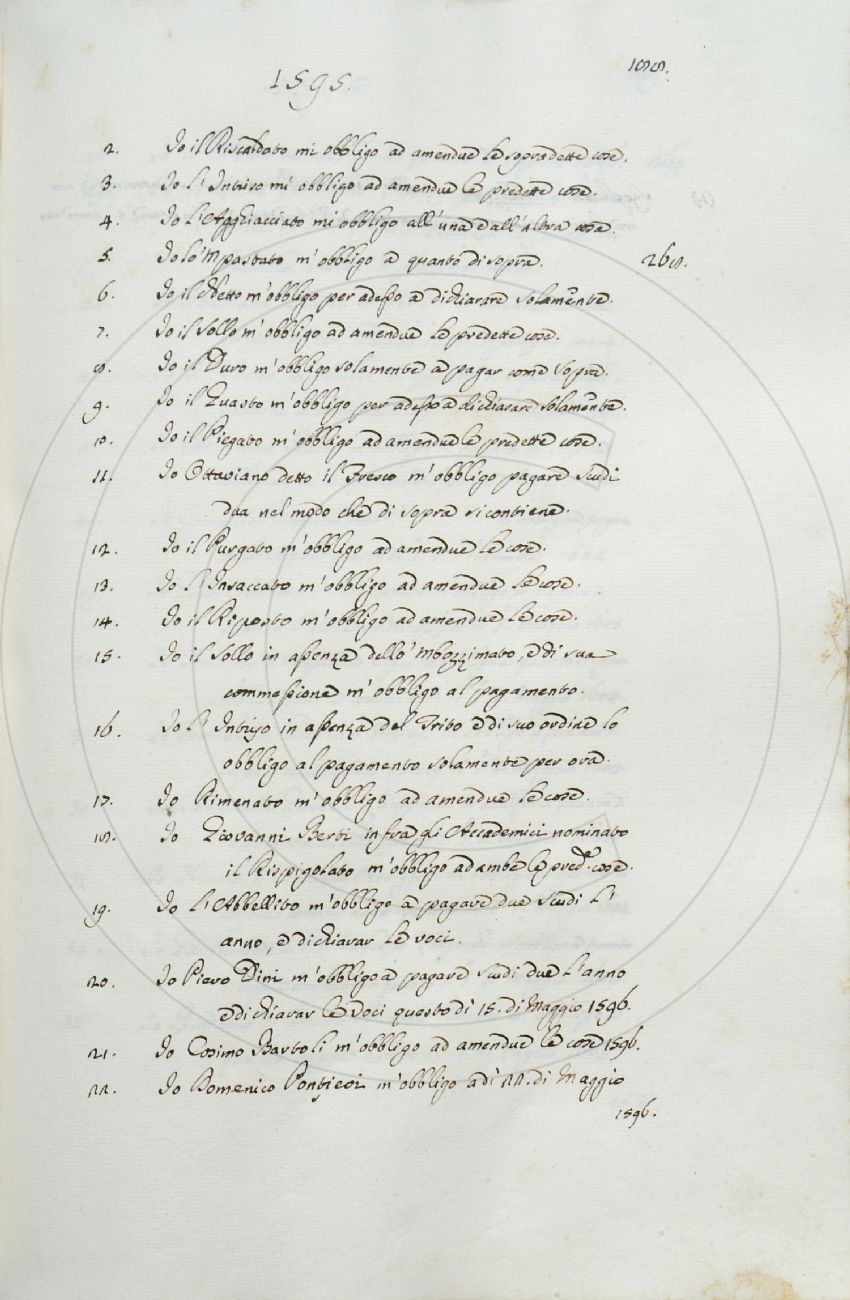 1595.
188.
2. Io il Riscaldato mi obbligo ad amendue le sopradette cose.
3. Io l'Intriso mi obbligo ad amendue le predette cose.
4. Io l'Agghiacciato mi obbligo all'una e all'altra cose.
5. Io lo 'mpastato m'obbligo a quanto di sopra. 268.
6. Io il Netto m'obbligo per adesso a dichiarare solamente.
7. Io il Sollo m'obbligo ad amendue le predette cose.
8. Io il Duro m'obbligo solamente a pagar come sopra.
9. Io il Guasto m'obbligo per adesso a dichiarare solamente.
10. Io il Piegato m'obbligo ad amendue le predette cose.
11. Io Ottaviano detto il Fresco m'obbligo pagare scudi
dua nel modo che di sopra si contiene.
12. Io il Purgato m'obbligo ad amendue le cose.
13. Io l'Insaccato m'obbligo ad amendue le cose.
14. Io il Riposto m'obbligo ad amendue le cose.
15. Io il Sollo in assenza dello 'mbozzimato, e di sua
commessione m'obbligo al pagamento.
16. Io l'Intriso in assenza del Trito e di suo ordine lo
obbligo al pagamento solamente per ora.
17. Io Rimenato m'obbligo ad amendue le cose.
18. Io Giovanni Berti infra gli Accademici nominato
il Rispigolato m'obbligo ad ambe le pred.e cose.
19. Io l'Abbellito m'obbligo a pagare due scudi l'
anno, e dichiarar le voci.
20. Io Piero Dini m'obbligo a pagare scudi due l'anno
e dichiarar le voci questo dì 15. di Maggio 1596.
21. Io Cosimo Bartoli m'obbligo ad amendue le cose 1596.
22. Io Domenico Ponticoi m'obbligo adì 22. di Maggio
1596.